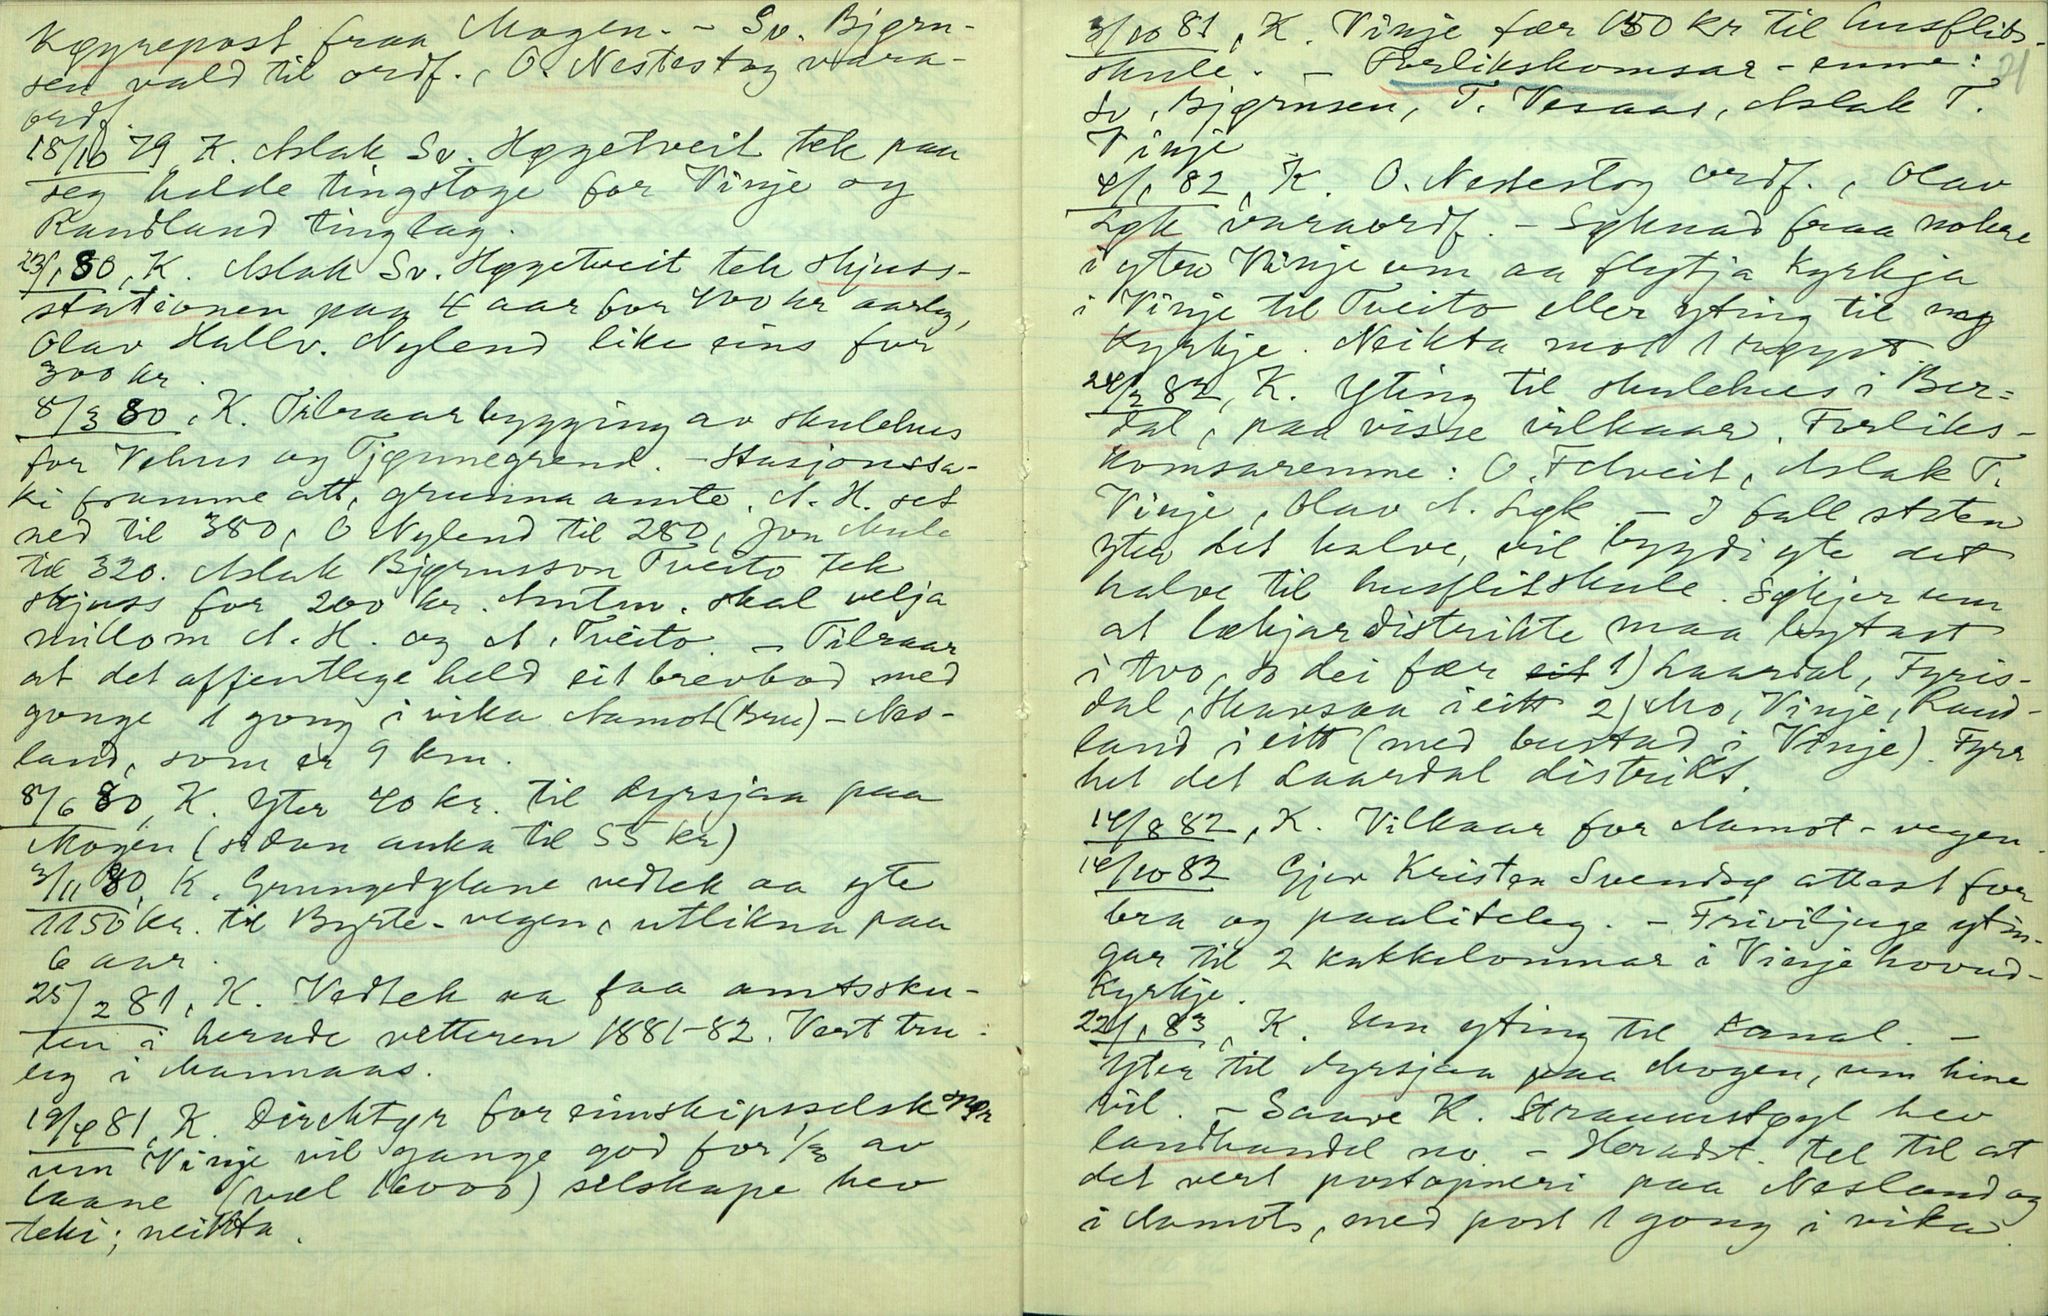 Køyrepost fraa Mogen. - Sv. Bjørn-
sen vald til ordf., O. Nestestog vara-
ordf.
18/10 79, K. Aslak Sv. Høgetveit tek paa
seg halde tingstoge for Vinje og
Raudland tinglag.
23/1 80, K. Aslak Sv. Høgetveit tek skjuss-
stationen paa 4 aar for 400 kr aarleg,
Olav Hallv. Nylend like eins for
300 kr.
8/3 80, K. Tilraar bygging av skulehus
for Vehus og Tjønnegrend. - Stasjonssa-
ki framme att, grunna amte. A. H. set
ned til 380, O Nylend til 280, Jon
til 320. Aslak Bjørnsson Tveito tek
skjuss for 200 kr. Amtm. skal velja
millom A. H. og A. Tveito. - Tilraar
at det offentlege held eit brevbod med
gonge 1 gong i vika Aamot (Bru) - Nes-
land, som er 9 km.
8/6 80, K. Yter 40 kr. til dyrsjaa paa
Mogen (sidan auka til 55 kr)
3/11 80, K. Grungedølane vedtek aa yte
1150 kr. til Byrte-vegen, utlikna paa
6 aar.
25/2 81, K. Vedtek aa faa amtssku-
len i herade vetteren 1881-82. Vert tru-
leg i Mannaas.
19/4 81, K. Direktyr for eimskipsselsk spør
um Vinje vil gange god for 1/3 av
laane (vel 16000) selskape hev
teke; neikta.
3/10 81, K. Vinje fær 150 kr til husflids-
skule. - Forlikskomsar-emne:
Sv. Bjørnsen, T. Vesaas, Aslak T.
Vinje
4/1 82, K. O. Nestestog ordf., Olav
Løk varaordf. - Søknad fraa nokre
i ytre Vinje um aa flytja kyrkja
i Vinje til Tveito eller yting til nøy
kyrkje. Neikta mot 1 røyst.
24/3 82, K. Yting til skulehus i Ber-
dal, paa visse vilkaar. Forliks-
komsaremne: O. Edtveit, Aslak T.
Vinje, Olav A. Løk. - I fall staten
yter det halve, vil bygdi yte det
halve til husflitskule. Søkjer um
at lækjardistrikte maa bytast
i tvo, so dei fær eit 1) Laardal, Fyris-
dal, Skafsaa i eitt 2) Mo, Vinje, Raud-
land i eitt (med bustad i Vinje). Fyrr
het det Laardal distrikt.
14/8 82, K. Vilkaar for Aamot-vegen.
14/10 82 Gjev Kristen Svendsø attest for
bra og paaliteleg. - Friviljuge ytin-
gar til 2 kakkelommar i Vinje hovud-
kyrkje.
22/1 83, K. Um yting til kanal. -
Yter til dyrsjaa paa Mogen, um hine
vil. - Sauve K. Straumstøyl hev
landhandel no. - Heradst. tel til at
det vert postopneri paa Nesland og
i Aamot, med post 1 gong i vika.
21